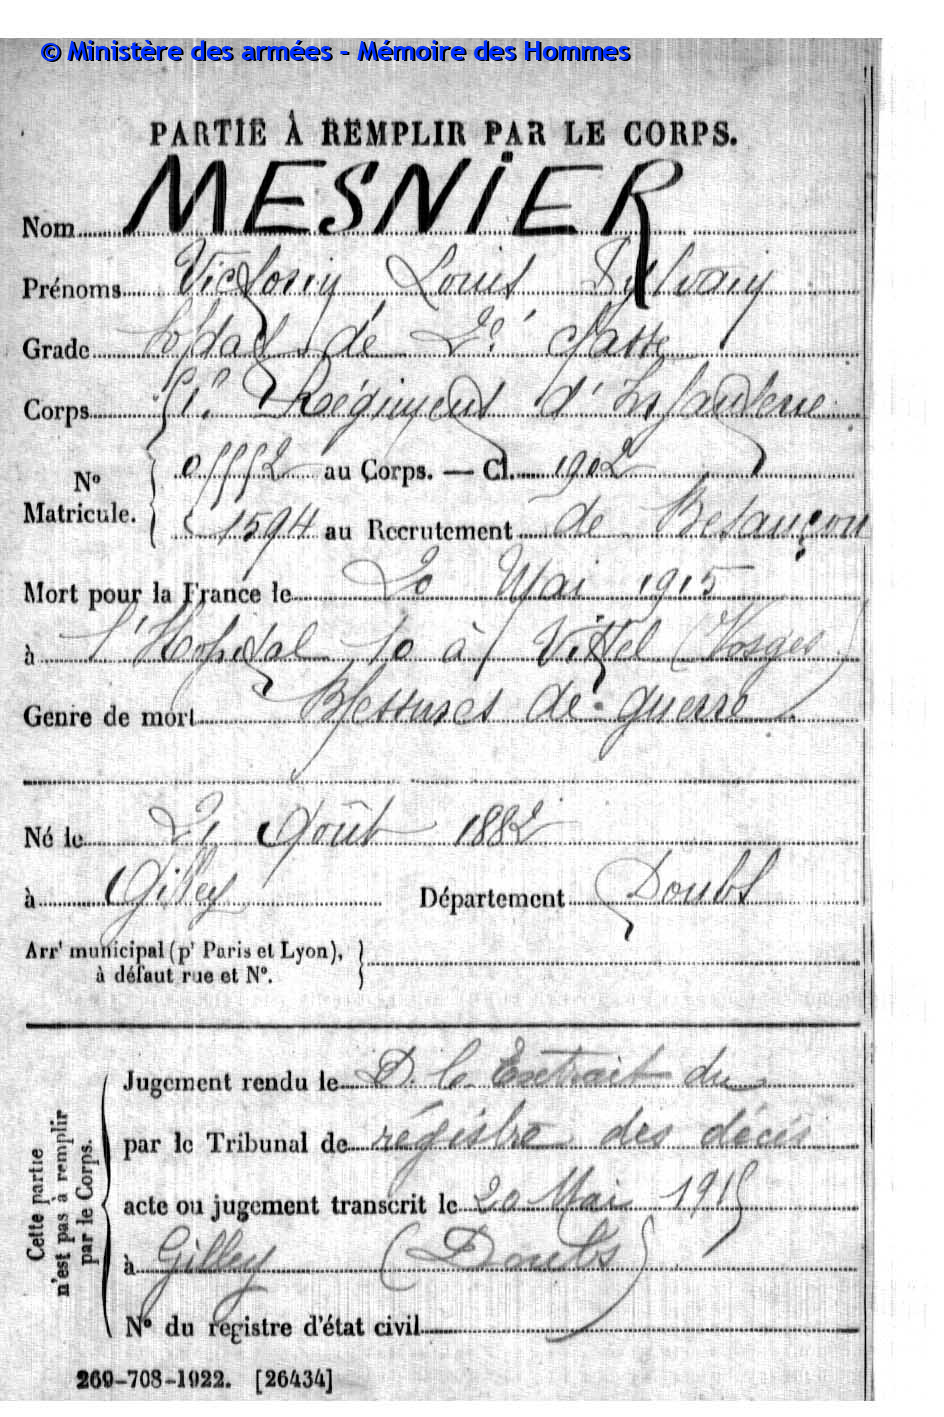 © Ministère des armées - Mémoire des Hommes
PARTIE À REMPLIR PAR LE CORPS.
Nom MESNIER
Prénoms Victorin Louis Sylvain
Grade Soldat de 2e classe
Corps Régiment d'Infanterie
No Matricule. { au Corps. — Cl. 1902
1594 au Recrutement de Besançon
Mort pour la France le 20 Mai 1915
à l'Hopital 10 à Vittel (Vosges)
Genre de mort Blessures de guerre
Né le 21 Août 1882
à Gilley Département Doubs
Arrt municipal (pr Paris et Lyon), }
à défaut rue et No.
Cette partie n'est pas à remplir par le Corps.
Jugement rendu le D. C. Extrait du
par le Tribunal de régistre des décès
acte ou jugement transcrit le 20 Mai 1915
à Gilley (Doubs)
No du registre d'état civil
269-708-1922. [26434]